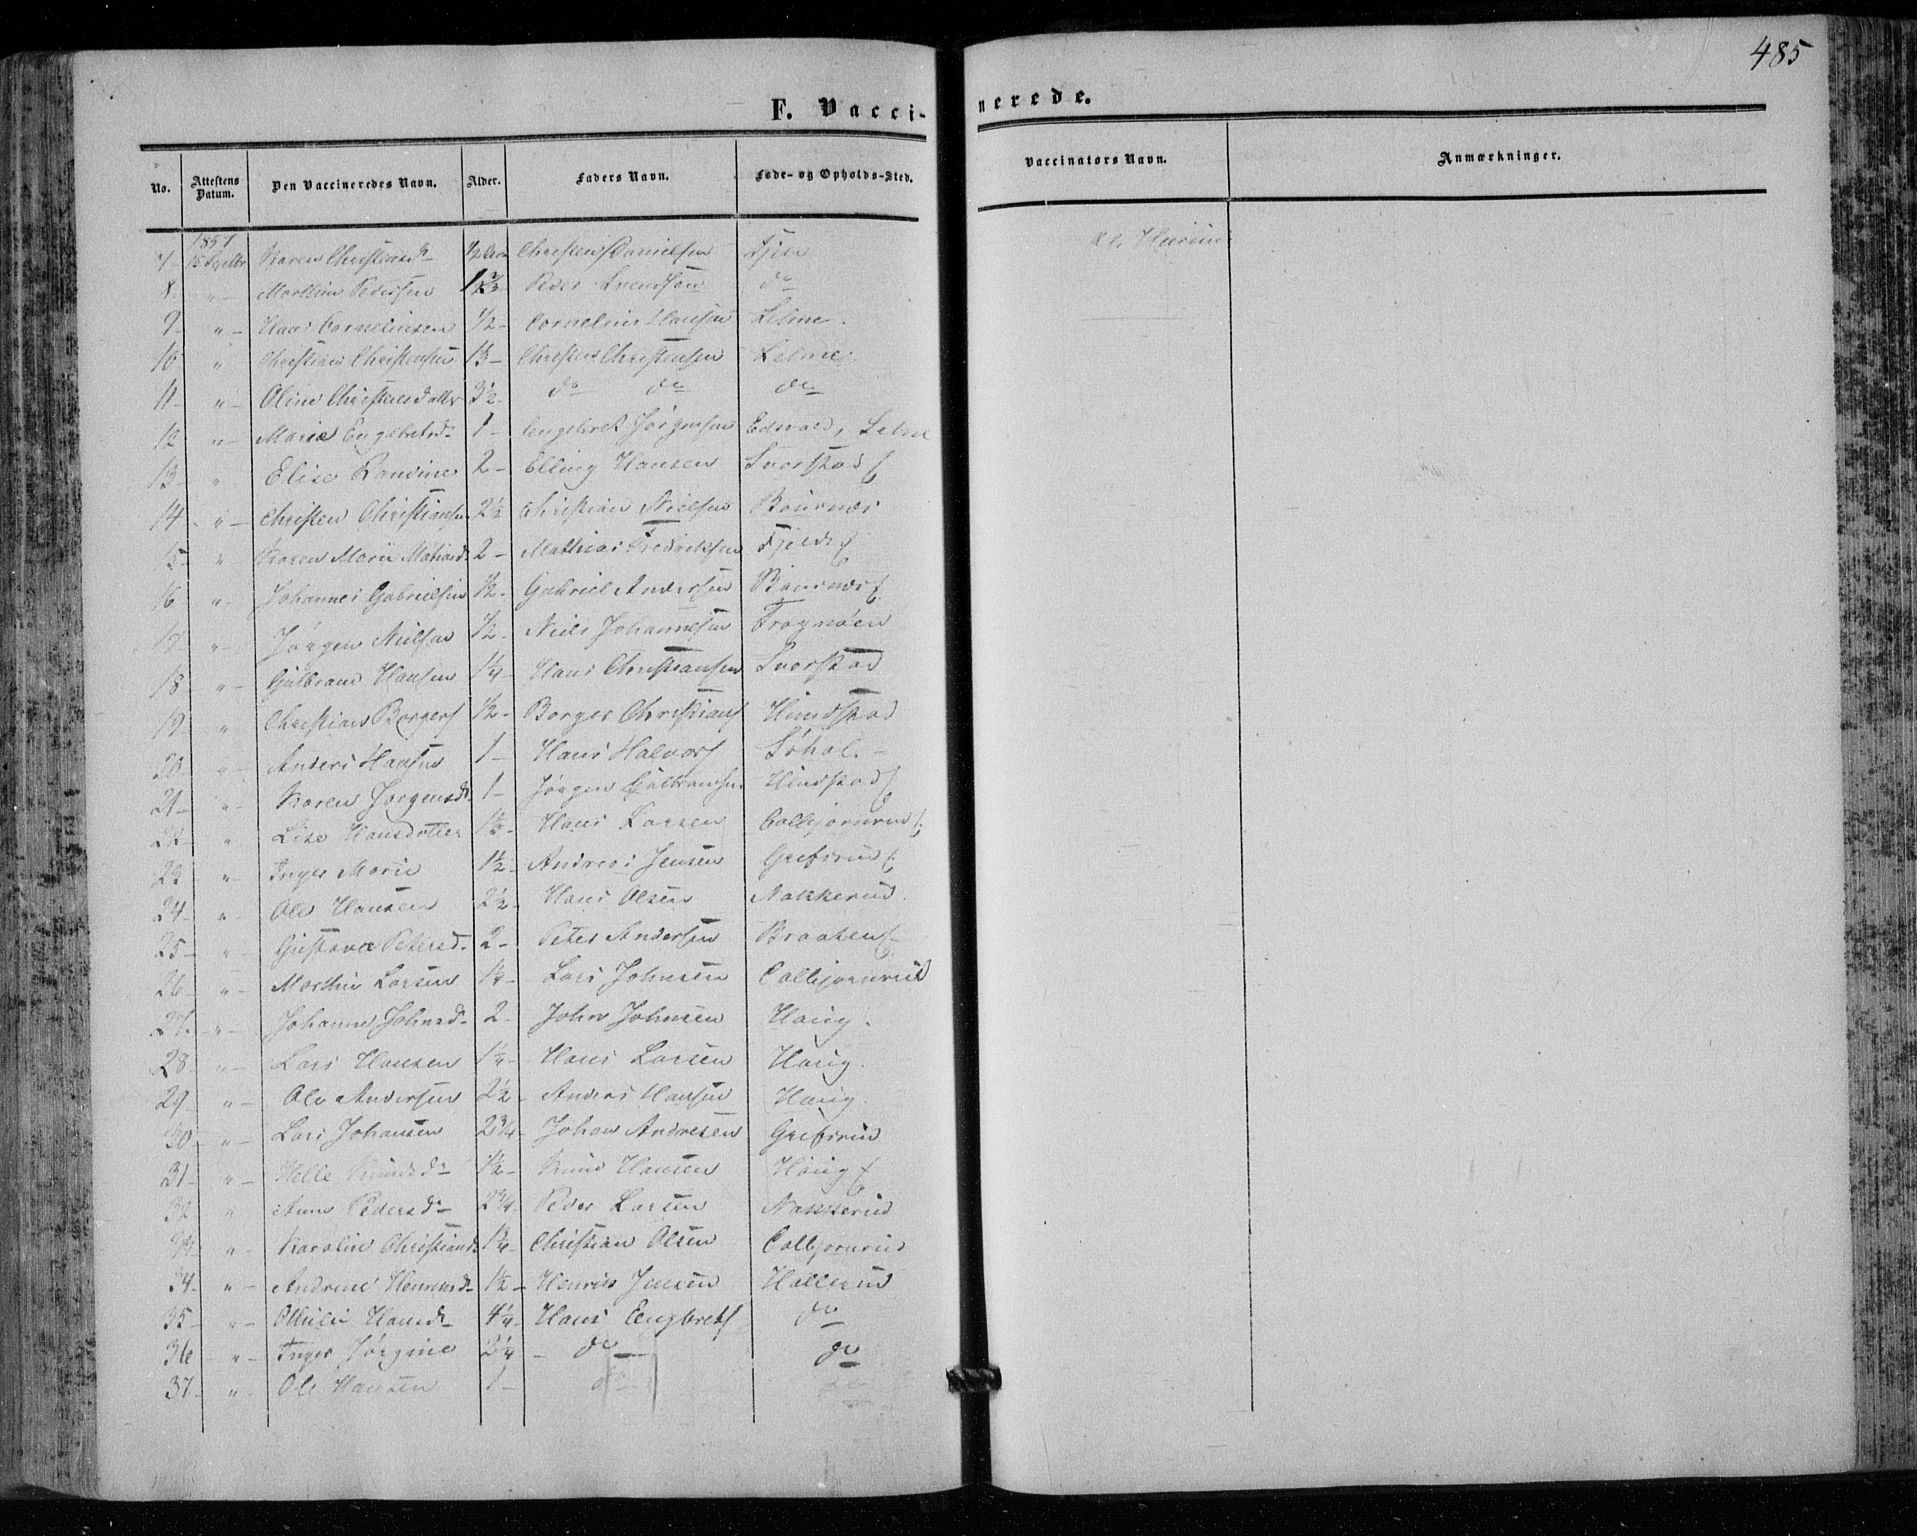 485
F. Vaccinerede.
No. Attestens Datum. Den Vaccineredes Navn. Alder. Faders Navn. Føde- og Opholds-Sted. Vaccinators Navn. Anmærkninger.
1857
7 - 15 Septbr Karen Christiansd - 1/2 Christen Danielsen
8 " - Mathias Pedersen Peder Svendsen do
9 - " - Hans Corneliusen 1/2 - Cornelius Hansen Selme.
10 - " Christian Christensen - Christen Christensen Selme
11 - " - Oline Christensdatter 3 1/2 - do do do
12 - " - Marie Engebretsd - 1 - Engebret Jørgensen Selme
13 - " - Elise Randine 2 - Elling Hansen Svarstad
14 - " - Christen Christiansen 2 1/2 Christian Nielsen
15 - " Karen Marie Mathiasd 2 - Mathias Fredriksen Fjeld
16 " - Johannes Gabrielsen 1/2 - Gabriel Andersen
17 - " - Jørgen Nielsen 1/2 - Niels Johannesen Frognøen
18 - " - Gulbrand Hansen 1 1/4 - Hans Christiansen Svarstad
19 " Christian Borgers 1/2 - Borger Christians Hundstad
20 - " - Anders Hansen 1 - Hans Halvors Søhol -
21 - " - Karen Jørgensd 1 - Jørgen Gulbransen Hundstad
22 - " Lise Hansdatter - Hans Larsen Colbjørnrud
23 - " - Inger Marie 1 1/2 - Andreas Jensen Grefsrud
24 - " - Ole Hansen 2 1/2 - Hans Olsen Nakkerud.
25 - " - Gustava Petersd - 2 - Peter Andersen Braaten
26 - " - Marthin Larsen - Lars Johnsen Colbjørnrud
27 - " - Johanne Johnsd - 2 - John Johnsen Houg.
28 - " - Lars Hansen 1 1/4 - Hans Larsen Houg.
29 - " - Ole Andersen 2 1/2 - Anders Hansen Houg.
30 - " - Lars Johansen 2 3/4 - Johan Andresen Grefsrud
31 - " - Helle Knudsd - 1 1/2 - Knud Hansen Houg
32 - " Anne Pedersd - 2 3/4 - Peder Larsen Nakkerud
33 - " - Karoline Christiansd - Christian Olsen Colbjørnrud
34 " - Andrine Henriksd - 1 1/2 - Henrik Jensen Hallerud
35 - " - Othilie Hansd - 4 1/4 - Hans Engbrets do
36 - " - Inger Jørgine 2 1/4 - do do
37 - " - Ole Hansen 1 - do do